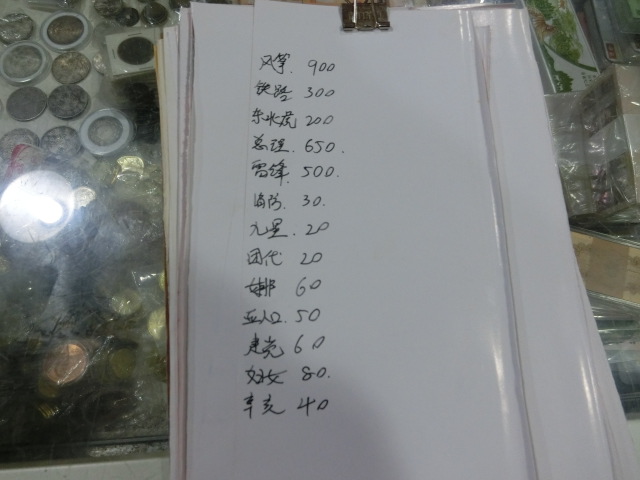 风筝. 900
铁路 300
东北虎 200
总理. 650.
雷锋 500.
消防. 30.
九星. 20
团代 20
娜 60
五人口. 50
建党 60
妇女 80.
辛亥 40